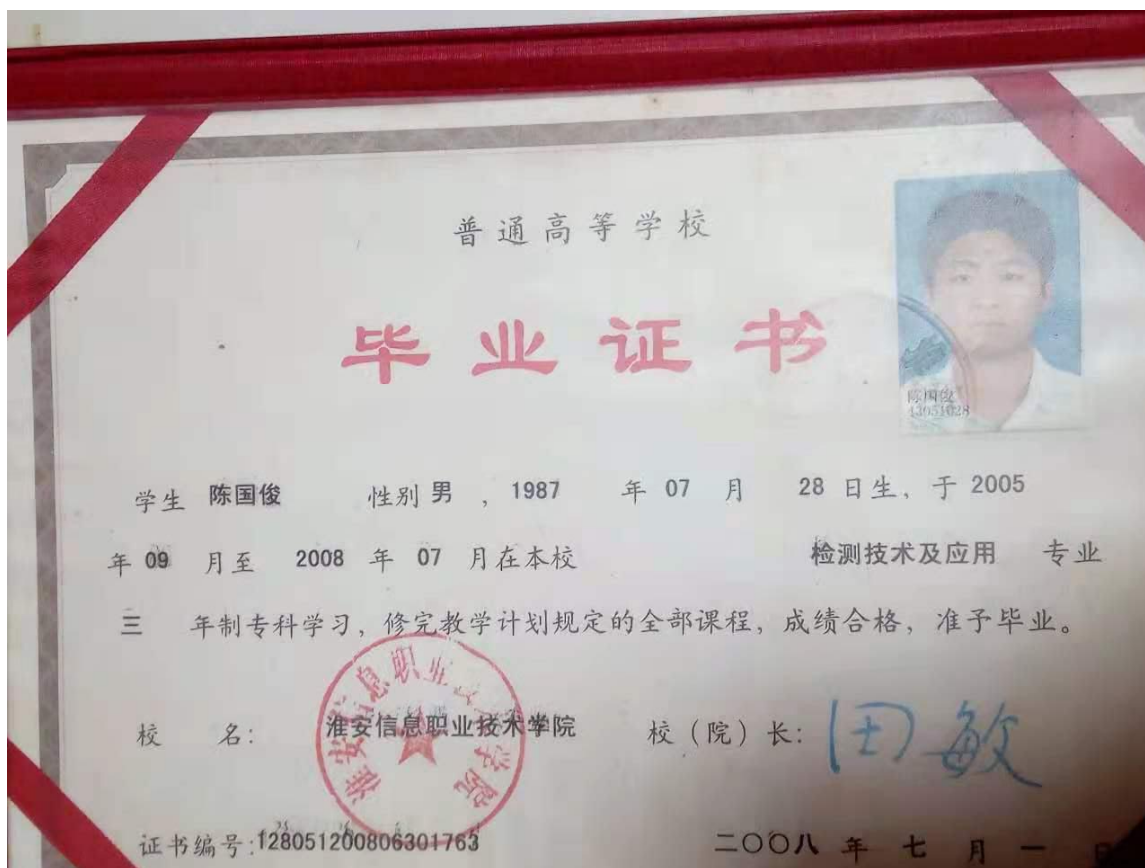 普通高等学校
毕业证书
陈国俊
43051028
学生 陈国俊 性别 男 ，1987 年 07 月 28 日生，于 2005
年 09 月至 2008 年 07 月在本校 检测技术及应用 专业
三 年制专科学习，修完教学计划规定的全部课程，成绩合格，准予毕业。
淮安信息职业技术学院
校 名： 淮安信息职业技术学院 校（院）长： 田敏
证书编号：128051200806301763 二〇〇八 年 七 月 一 日